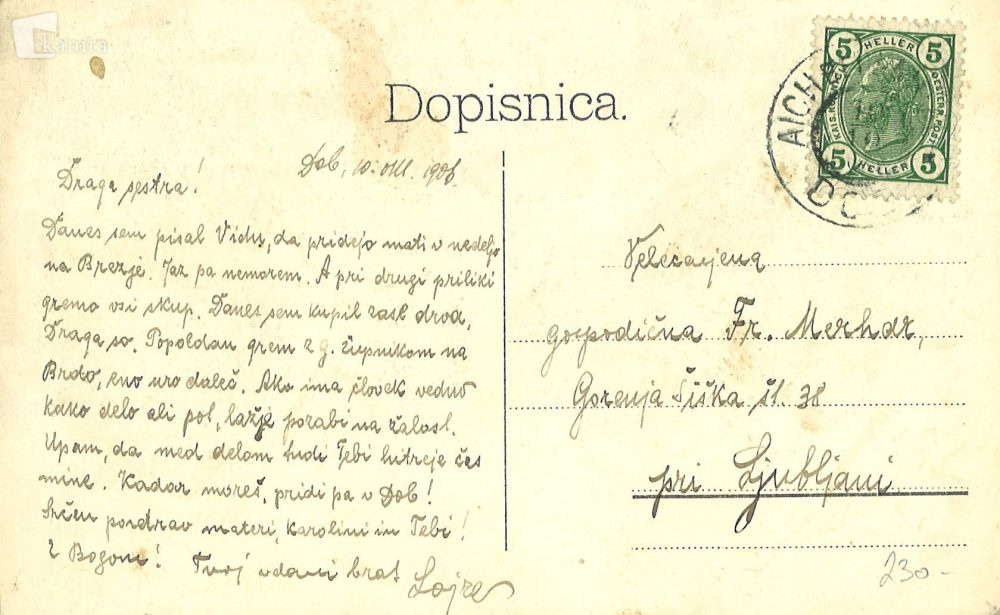 kamra
Dopisnica.
5 HELLER 5
5 HELLER 5
AICH
DO
Dob, 10. okt. 1906.
Draga sestra!
Danes sem pisal Vichi, da pridejo mati v nedeljo
na Brezje. Jaz pa nemorem. A pri drugi priliki
gremo vsi skup. Danes sem kupil drva,
Draga so. Popoldan grem z g. župnikom na
Brdo, eno uro daleč. Ako ima človek vedno
kako delo ali pot, lažje pozabi na žalost.
Upam, da med delom tudi Tebi hitreje čas
mine. Kadar moreš, pridi pa v Dob!
Srčen pozdrav materi, Karolini in Tebi!
Z Bogom! Tvoj udani brat Lojze
Velecenjena
gospodična Fr. Merhar,
Gorenja Šiška št. 38
pri Ljubljani
230-